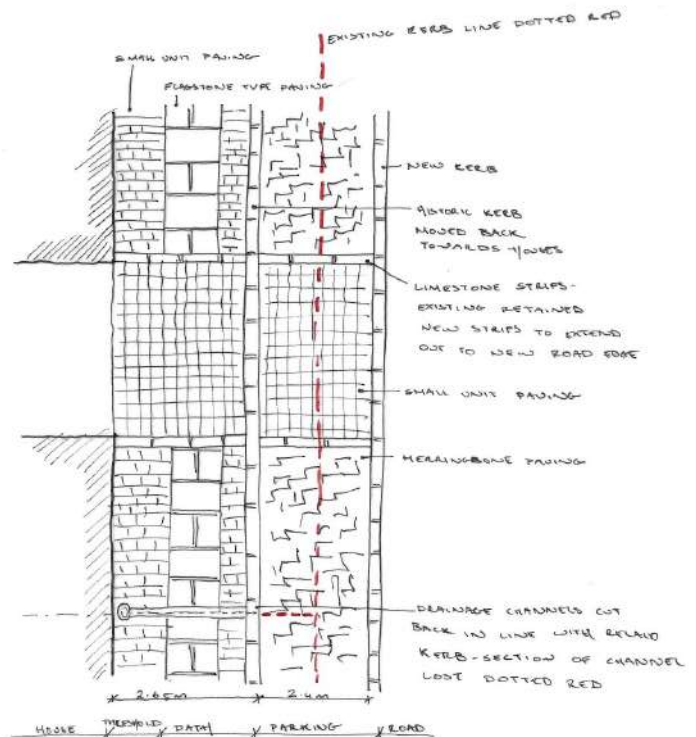 EXISTING KERB LINE DOTTED RED
SMALL UNIT PAVING
FLAGSTONE TYPE PAVING
NEW KERB
HISTORIC KERB
MOVED BACK
TOWARDS HOUSES
LIMESTONE STRIPS-
EXISTING RETAINED
NEW STRIPS TO EXTEND
OUT TO NEW ROAD EDGE
SMALL UNIT PAVING
HERRINGBONE PAVING
DRAINAGE CHANNELS CUT
BACK IN LINE WITH RELAID
KERB-SECTION OF CHANNEL
LOST DOTTED RED
2.65m 2.4m
HOUSE THRESHOLD PATH PARKING ROAD